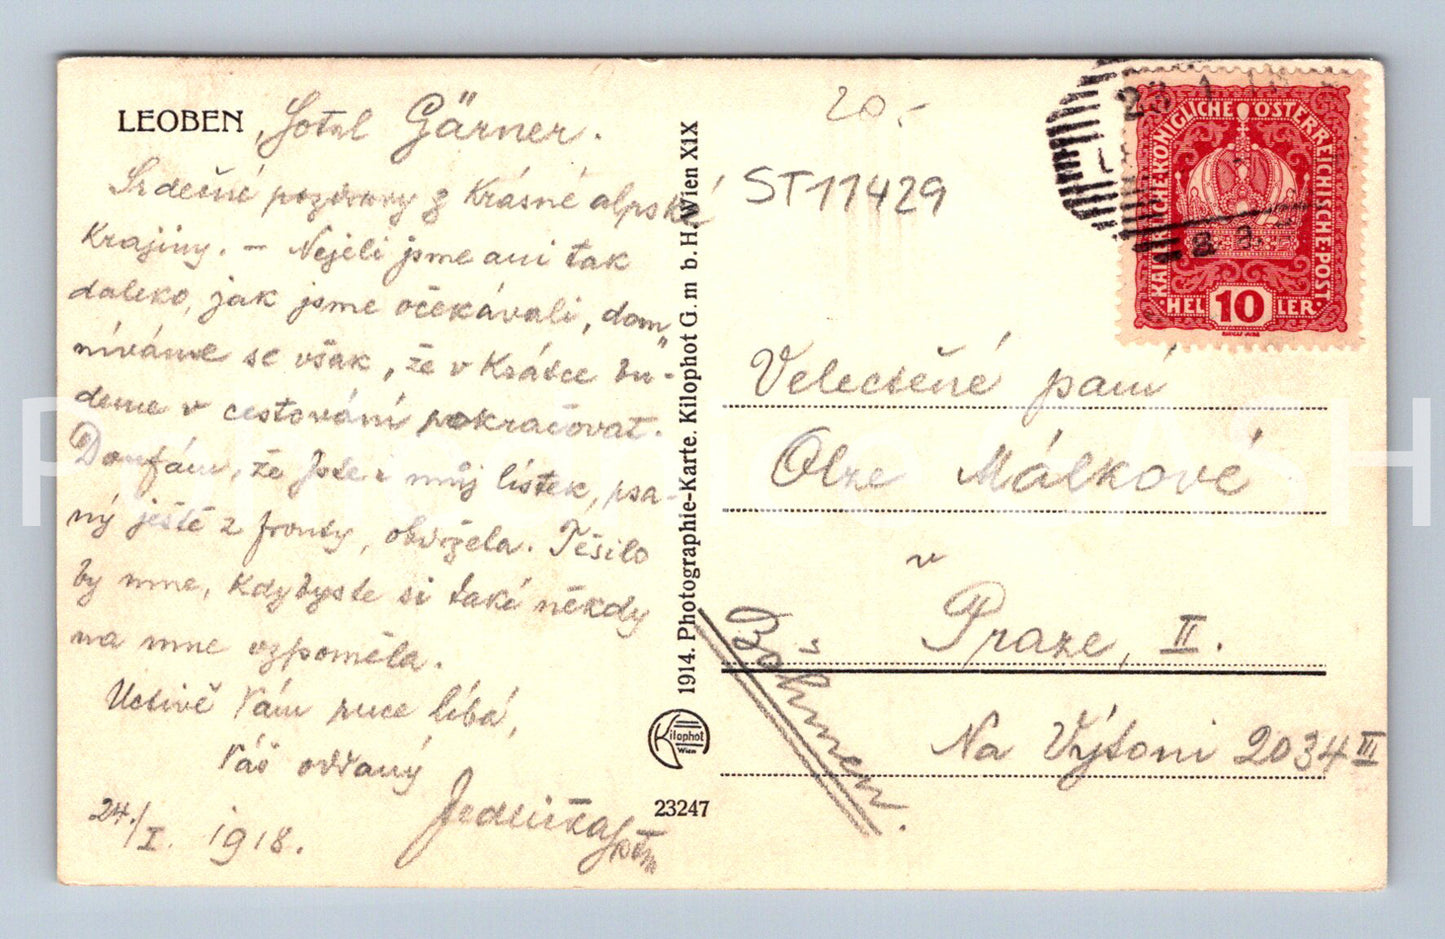 LEOBEN, Hotel Gärner.
Srdečné pozdravy z krásné alpské
krajiny. — Nejeli jsme ani tak
daleko, jak jsme očekávali, dom„
níváme se však, že v krátce bu-
deme v cestování pokračovat.
Doufám, že jste i můj lístek, psa-
ný ještě z fronty, obdržela. Těšilo
by mne, kdybyste si také někdy
na mne vzpoměla.
Uctivě Vám ruce líbá,
Váš oddaný
Jedlička
24./I. 1918.
1914. Photographie-Karte. Kilophot G. m b. H. Wien XIX
Kilophot
Wien
23247
20.-
ST11429
KAISERLICHE·KÖNIGLICHE ÖSTERREICHISCHE·POST
HEL 10 LER
Velectěné paní
Olze Málkové
v
Praze, II.
Na Výtoni 2034 III
Böhmen.